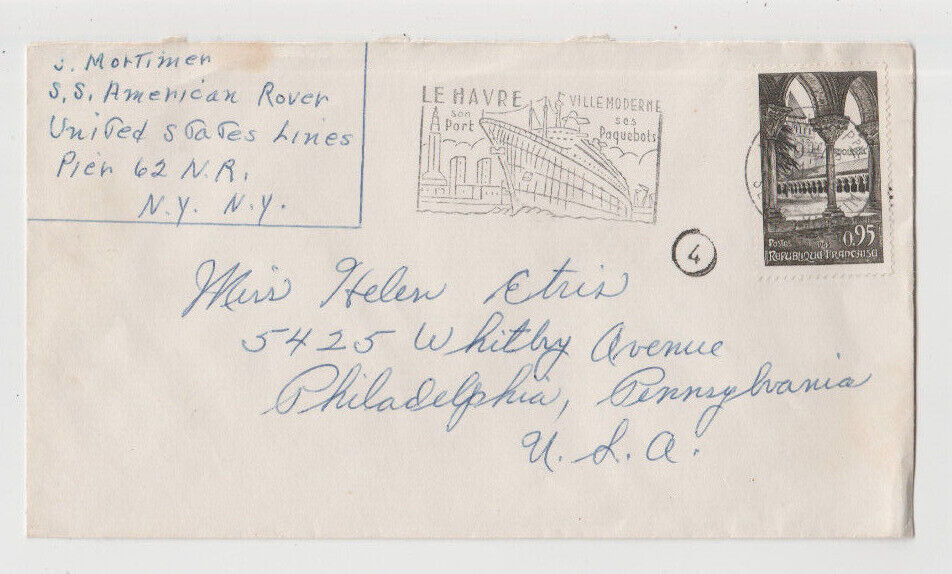 J. Mortimer
S.S. American Rover
United States Lines
Pier 62 N.R.
N.Y. N.Y.
LE HAVRE VILLE MODERNE
son Port ses Paquebots
Postes 0.95
REPUBLIQUE FRANÇAISE
4
Miss Helen Etris
5425 Whitby Avenue
Philadelphia, Pennsylvania
U.S.A.